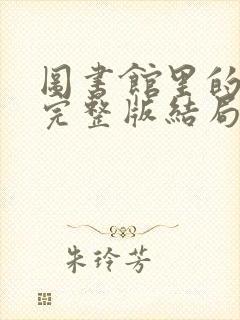 圖書館里的
完整版結局
朱玲芳